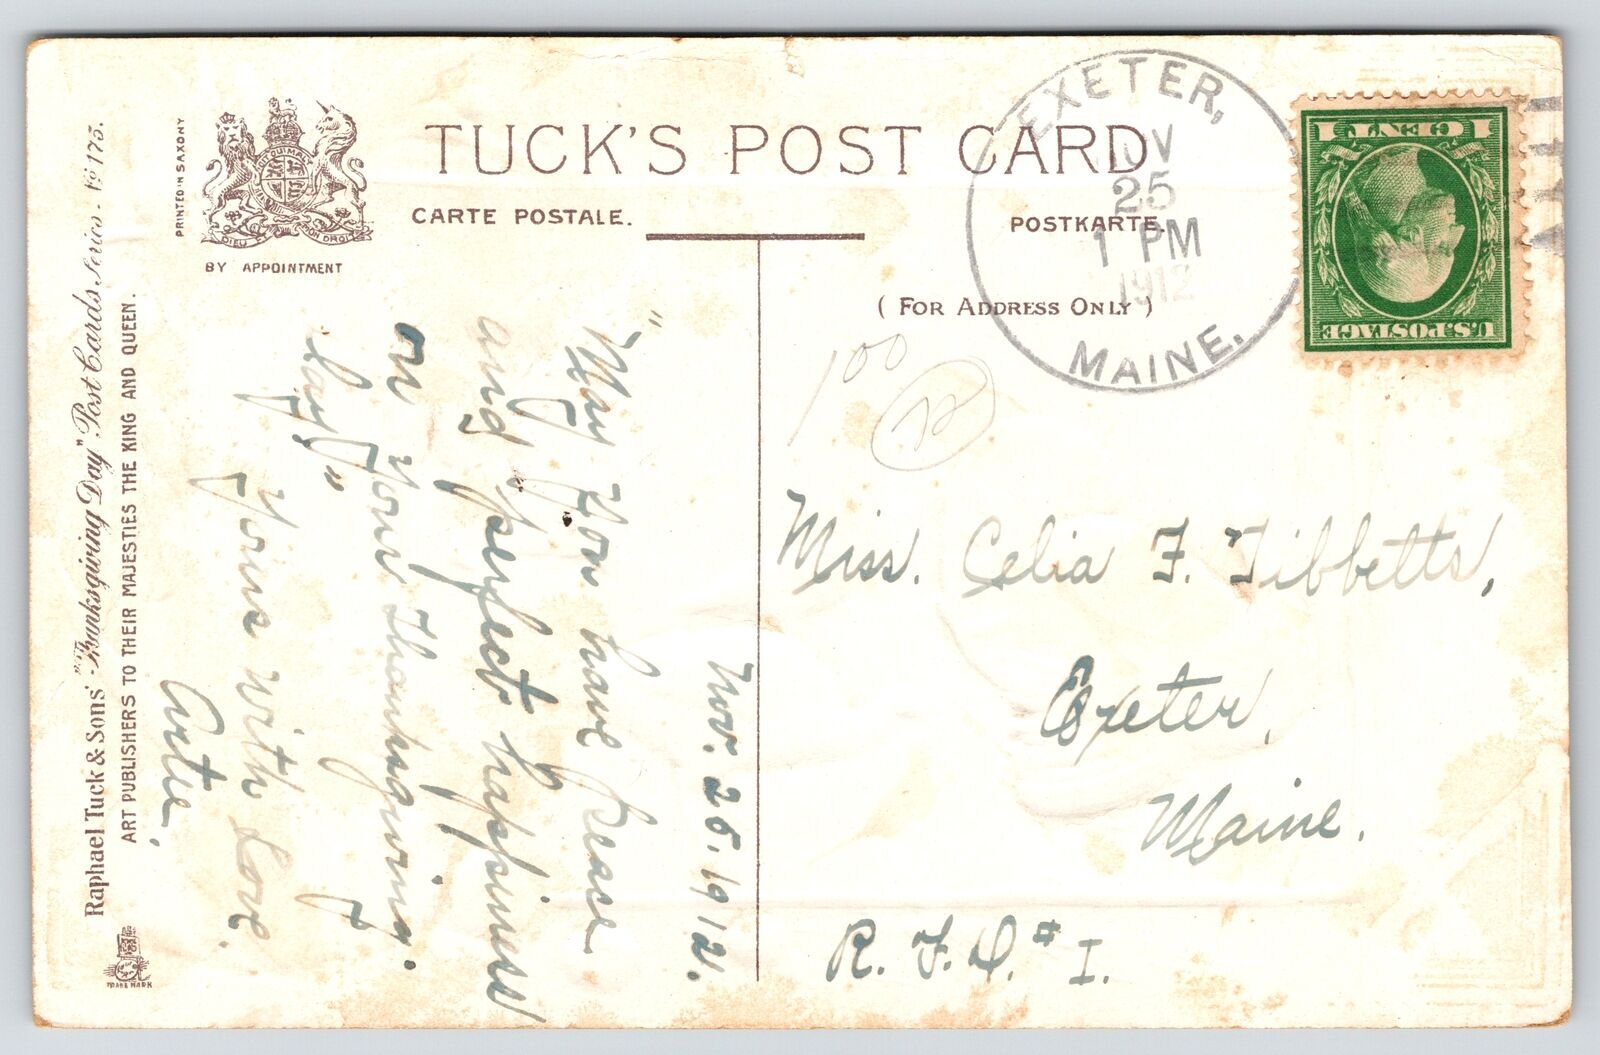 TUCK'S POST CARD
CARTE POSTALE.
POSTKARTE.
(FOR ADDRESS ONLY)
PRINTED IN SAXONY
DIEU ET MON DROIT
BY APPOINTMENT
Raphael Tuck & Sons' "Thanksgiving Day" Post Cards. Series. No 175.
ART PUBLISHERS TO THEIR MAJESTIES THE KING AND QUEEN.
TRADE MARK
EXETER,
NOV
25
1 PM
1912
MAINE.
1 CENT 1
U.S. POSTAGE
100
Nov. 25. 1912.
"May you have Peace
and perfect happiness
on your Thanksgiving
Day."
Yours with Love.
Miss. Celia F. Tibbetts,
Exeter,
Maine.
R. F. D. # 1.